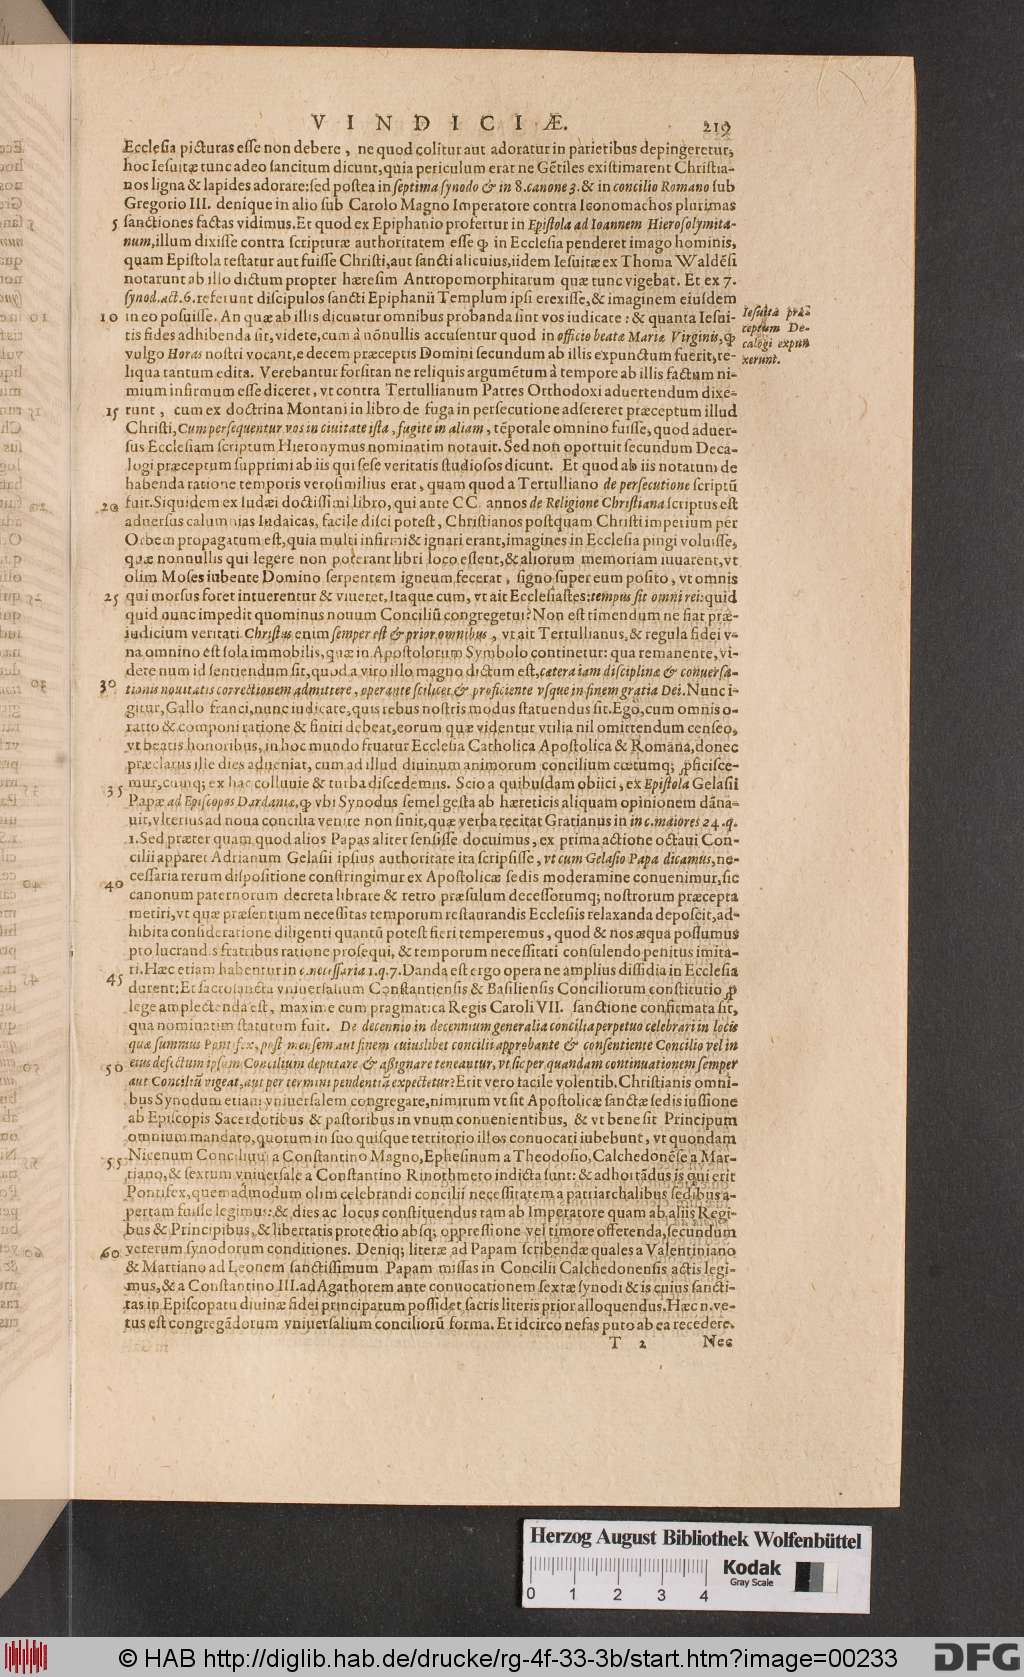 VINDICIÆ. 219
Ecclesia picturas esse non debere, ne quod colitur aut adoratur in parietibus depingeretur,
hoc Iesuitæ tunc adeo sancitum dicunt, quia periculum erat ne Gẽtiles existimarent Christia-
nos ligna & lapides adorare: sed postea in septima synodo & in 8. canone 3. & in concilio Romano sub
Gregorio III. denique in alio sub Carolo Magno Imperatore contra Iconomachos plurimas
5 sanctiones factas vidimus. Et quod ex Epiphanio profertur in Epistola ad Ioannem Hierosolymita-
num, illum dixisse contra scripturæ authoritatem esse ꝙ in Ecclesia penderet imago hominis,
quam Epistola testatur aut fuisse Christi, aut sancti alicuius, iidem Iesuitæ ex Thoma Waldẽsi
notarunt ab illo dictum propter hæresim Antropomorphitarum quæ tunc vigebat. Et ex 7.
synod. act. 6. referunt discipulos sancti Epiphanii Templum ipsi erexisse, & imaginem eiusdem
10 in eo posuisse. An quæ ab illis dicuntur omnibus probanda sint vos iudicate: & quanta Iesui-
tis fides adhibenda sit, videte, cum à nõnullis accusentur quod in officio beatæ Mariæ Virginis, ꝙ
vulgo Horas nostri vocant, e decem præceptis Domini secundum ab illis expunctum fuerit, re-
liqua tantum edita. Verebantur forsitan ne reliquis argumẽtum à tempore ab illis factum ni-
mium infirmum esse diceret, vt contra Tertullianum Patres Orthodoxi aduertendum dixe-
15 runt, cum ex doctrina Montani in libro de fuga in persecutione adsereret præceptum illud
Christi, Cum persequentur vos in ciuitate ista, fugite in aliam, tẽporale omnino fuisse, quod aduer-
sus Ecclesiam scriptum Hieronymus nominatim notauit. Sed non oportuit secundum Deca-
logi præceptum supprimi ab iis qui sese veritatis studiosos dicunt. Et quod ab iis notatum de
habenda ratione temporis verosimilius erat, quam quod a Tertulliano de persecutione scriptũ
20 fuit. Siquidem ex Iudæi doctissimi libro, qui ante CC. annos de Religione Christiana scriptus est
aduersus calumnias Iudaicas, facile disci potest, Christianos postquam Christi imperium per
Orbem propagatum est, quia multi infirmi & ignari erant, imagines in Ecclesia pingi voluisse,
quæ nonnullis qui legere non poterant libri loco essent, & aliorum memoriam iuuarent, vt
olim Moses iubente Domino serpentem igneum fecerat, signo super eum posito, vt omnis
25 qui morsus foret intuerentur & viueret. Itaque cum, vt ait Ecclesiastes: tempus sit omni rei: quid
quid nunc impedit quominus nouum Conciliũ congregetur? Non est timendum ne fiat præ-
iudicium veritati. Christus enim semper est & prior omnibus, vt ait Tertullianus, & regula fidei v-
na omnino est sola immobilis, quæ in Apostolorum Symbolo continetur: qua remanente, vi-
dete num id sentiendum sit, quod a viro illo magno dictum est, cætera iam disciplinæ & conuersa-
30 tionis nouitatis correctionem admittere, operante scilicet & proficiente vsque in finem gratia Dei. Nunc i-
gitur, Gallo franci, nunc iudicate, quis rebus nostris modus statuendus sit. Ego, cum omnis o-
ratio & componi ratione & finiri debeat, eorum quæ videntur vtilia nil omittendum censeo,
vt beatis honoribus, in hoc mundo fruatur Ecclesia Catholica Apostolica & Romana, donec
præclarus ille dies adueniat, cum ad illud diuinum animorum concilium cœtumq; ꝓficisce-
35 mur, cumq; ex hac colluuie & turba discedemus. Scio a quibusdam obiici, ex Epistola Gelasii
Papæ ad Episcopos Dardaniæ, ꝙ vbi Synodus semel gesta ab hæreticis aliquam opinionem dãna-
uit, vlterius ad noua concilia venire non sinit, quæ verba recitat Gratianus in in c. maiores 24. q.
1. Sed præter quam quod alios Papas aliter sensisse docuimus, ex prima actione octaui Con-
cilii apparet Adrianum Gelasii ipsius authoritate ita scripsisse, vt cum Gelasio Papa dicamus, ne-
40 cessaria rerum dispositione constringimur ex Apostolicæ sedis moderamine conuenimur, sic
canonum paternorum decreta librare & retro præsulum decessorumq; nostrorum præcepta
metiri, vt quæ præsentium necessitas temporum restaurandis Ecclesiis relaxanda deposcit, ad-
hibita consideratione diligenti quantũ potest fieri temperemus, quod & nos æqua possumus
pro lucrandis fratribus ratione prosequi, & temporum necessitati consulendo penitus imita-
45 ri. Hæc etiam habentur in c. necessaria 1. q. 7. Danda est ergo opera ne amplius dissidia in Ecclesia
durent: Et sacrosancta vniuersalium Constantiensis & Basiliensis Conciliorum constitutio ꝓ
lege amplectenda est, maxime cum pragmatica Regis Caroli VII. sanctione confirmata sit,
qua nominatim statutum fuit. De decennio in decennium generalia concilia perpetuo celebrari in locis
quæ summus Pontifex, post mensem aut finem cuiuslibet concilii approbante & consentiente Concilio vel in
50 eius defectum ipsum Concilium deputare & aßignare teneantur, vt sic per quandam continuationem semper
aut Conciliũ vigeat, aut per termini pendentiã expectetur? Erit vero facile volentib. Christianis omni-
bus Synodum etiam vniuersalem congregare, nimirum vt sit Apostolicæ sanctæ sedis iussione
ab Episcopis Sacerdotibus & pastoribus in vnum conuenientibus, & vt bene sit Principum
omnium mandato, quorum in suo quisque territorio illos conuocari iubebunt, vt quondam
55 Nicenum Concilium a Constantino Magno, Ephesinum a Theodosio, Calchedonẽse a Mar-
tiano, & sextum vniuersale a Constantino Rinothmeto indicta sunt: & adhortãdus is qui erit
Pontifex, quemadmodum olim celebrandi concilii necessitatem a patriarchalibus sedibus a-
pertam fuisse legimus: & dies ac locus constituendus tam ab Imperatore quam ab aliis Regi-
bus & Principibus, & libertatis protectio absq; oppressione vel timore offerenda, secundum
60 veterum synodorum conditiones. Deniq; literæ ad Papam scribendæ quales a Valentiniano
& Martiano ad Leonem sanctissimum Papam missas in Concilii Calchedonensis actis legi-
mus, & a Constantino III. ad Agathorem ante conuocationem sextæ synodi & is cuius sancti-
tas in Episcopatu diuinæ fidei principatum possidet sacris literis prior alloquendus. Hæc n. ve-
tus est congregãdorum vniuersalium conciliorũ forma. Et idcirco nefas puto ab ea recedere.
T 2 Nec
Iesuitæ præ-
ceptum De-
calogi expun
xerunt.
Herzog August Bibliothek Wolfenbüttel
Kodak
Gray Scale
0 1 2 3 4
© HAB http://diglib.hab.de/drucke/rg-4f-33-3b/start.htm?image=00233
DFG